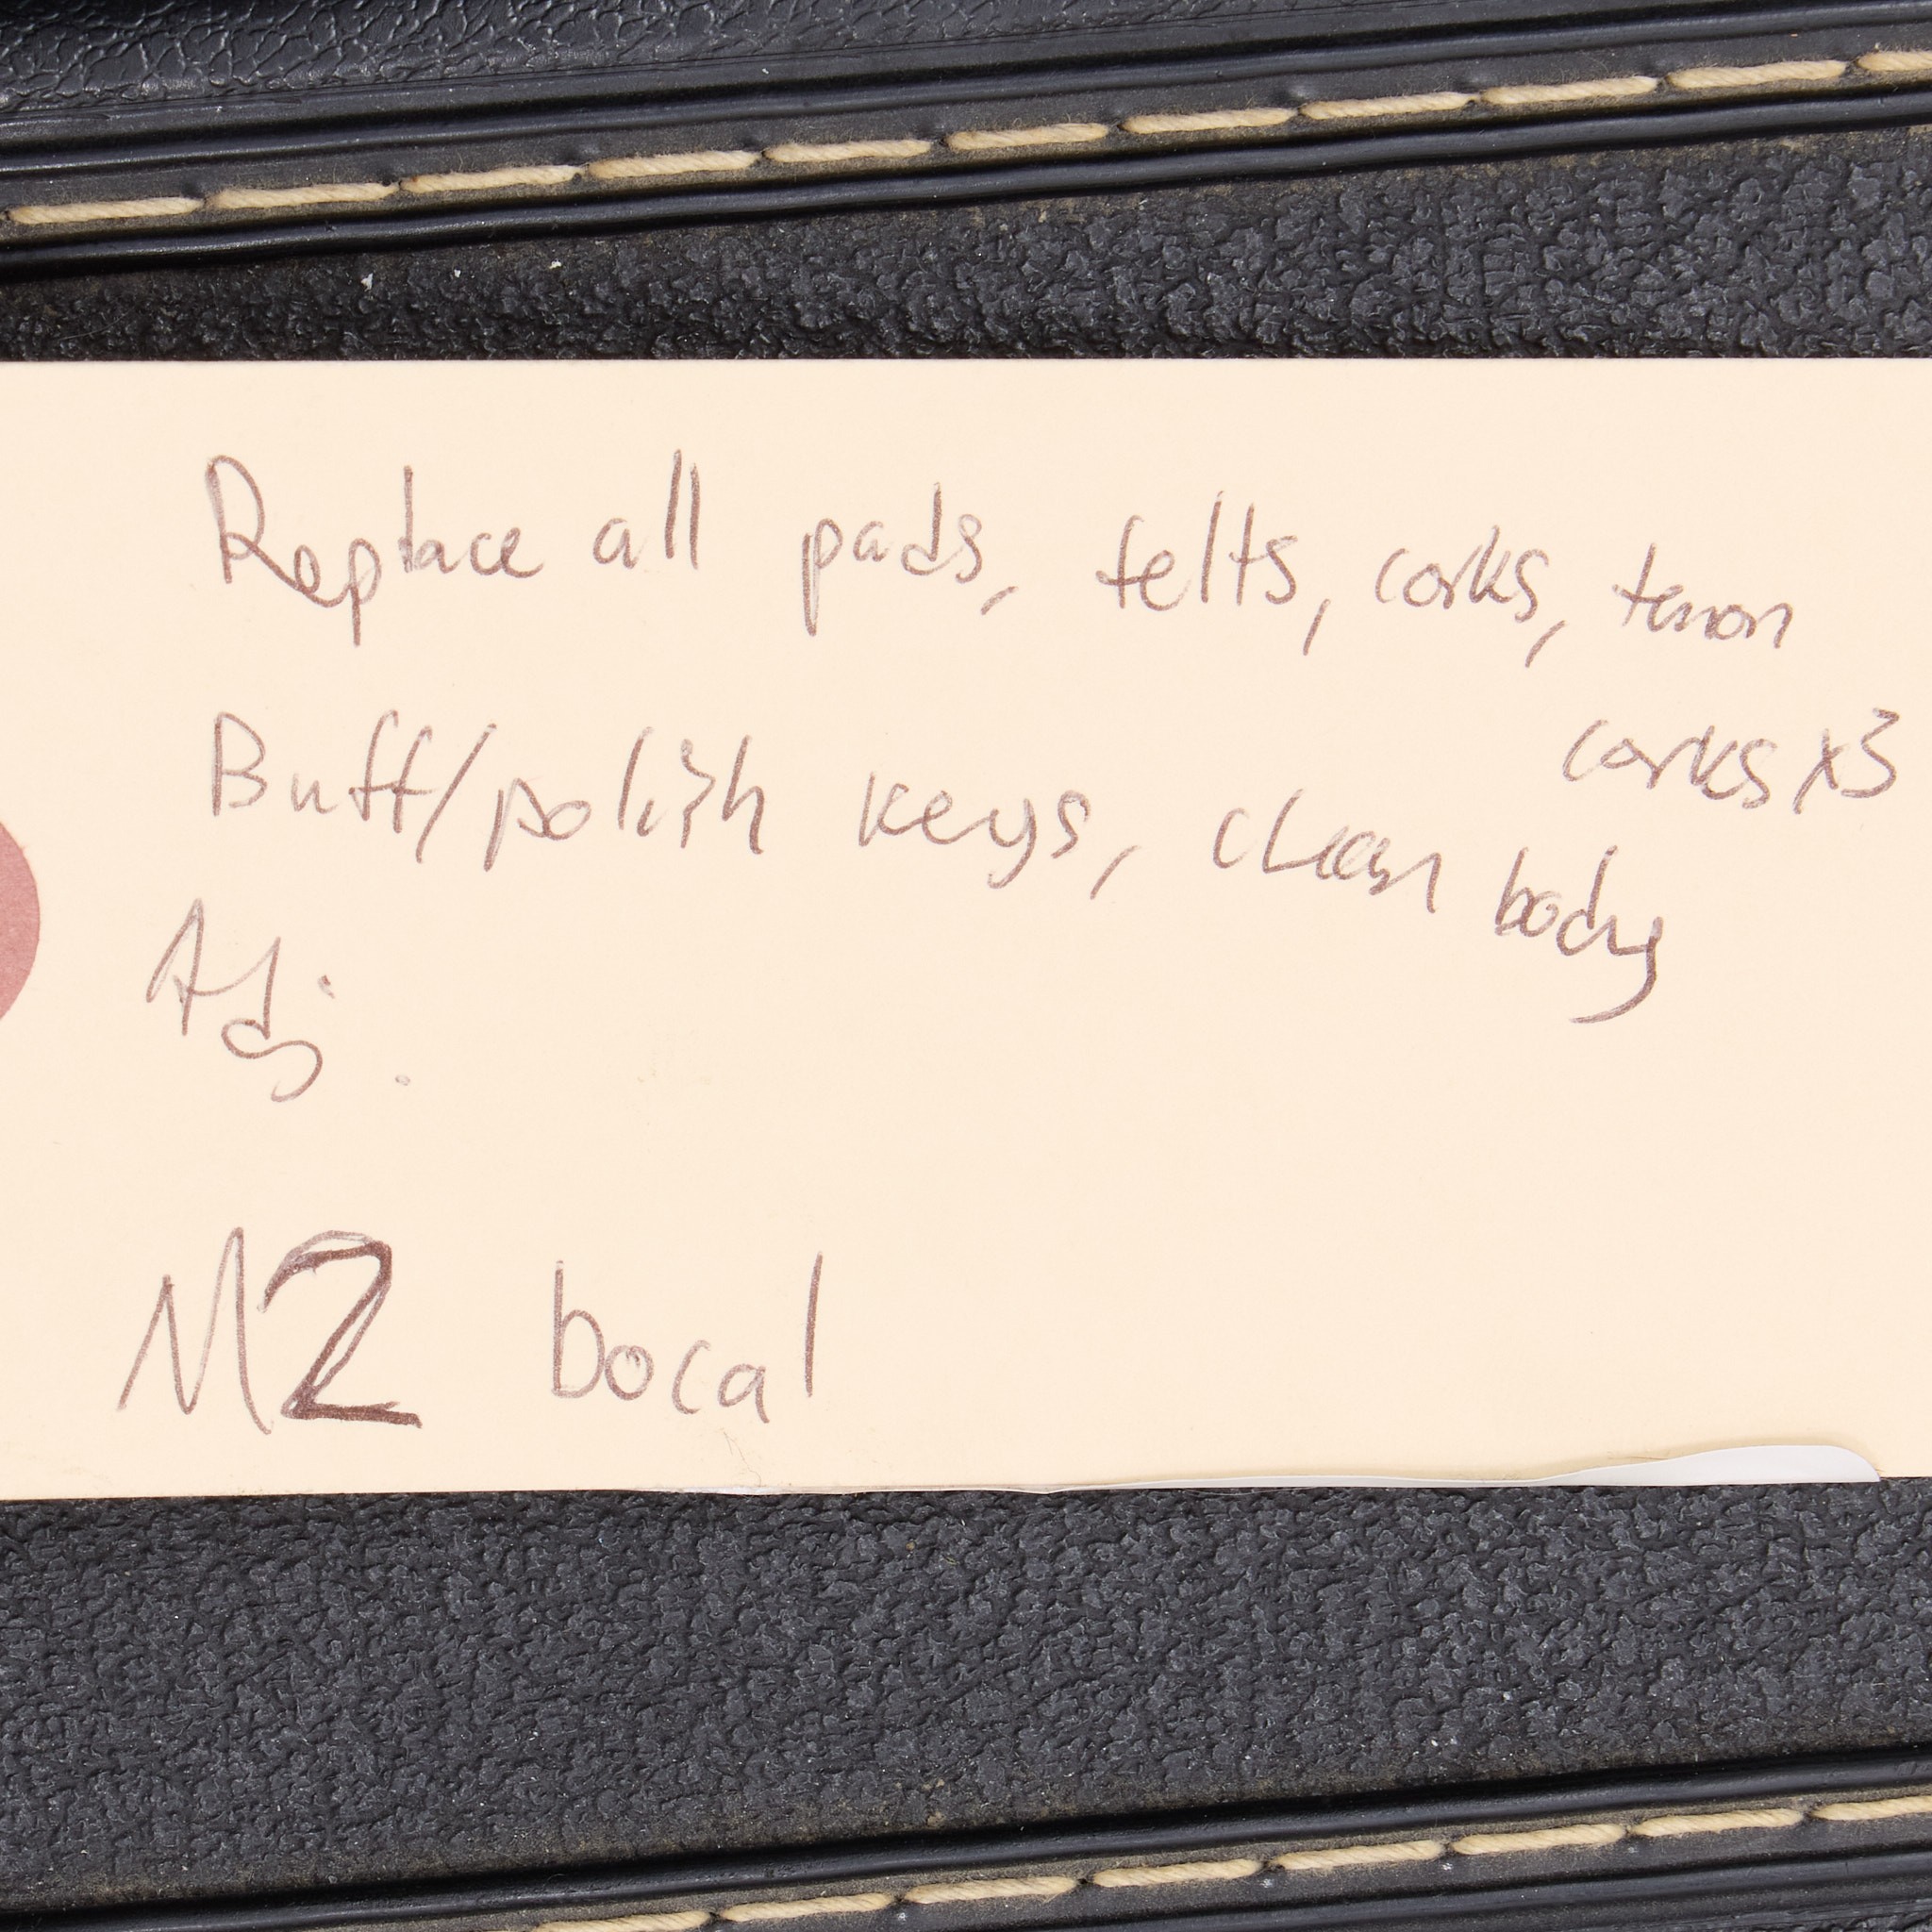 Replace all pads, felts, corks, tenon
corks x3
Buff/polish keys, clean body
Adj.
M2 bocal